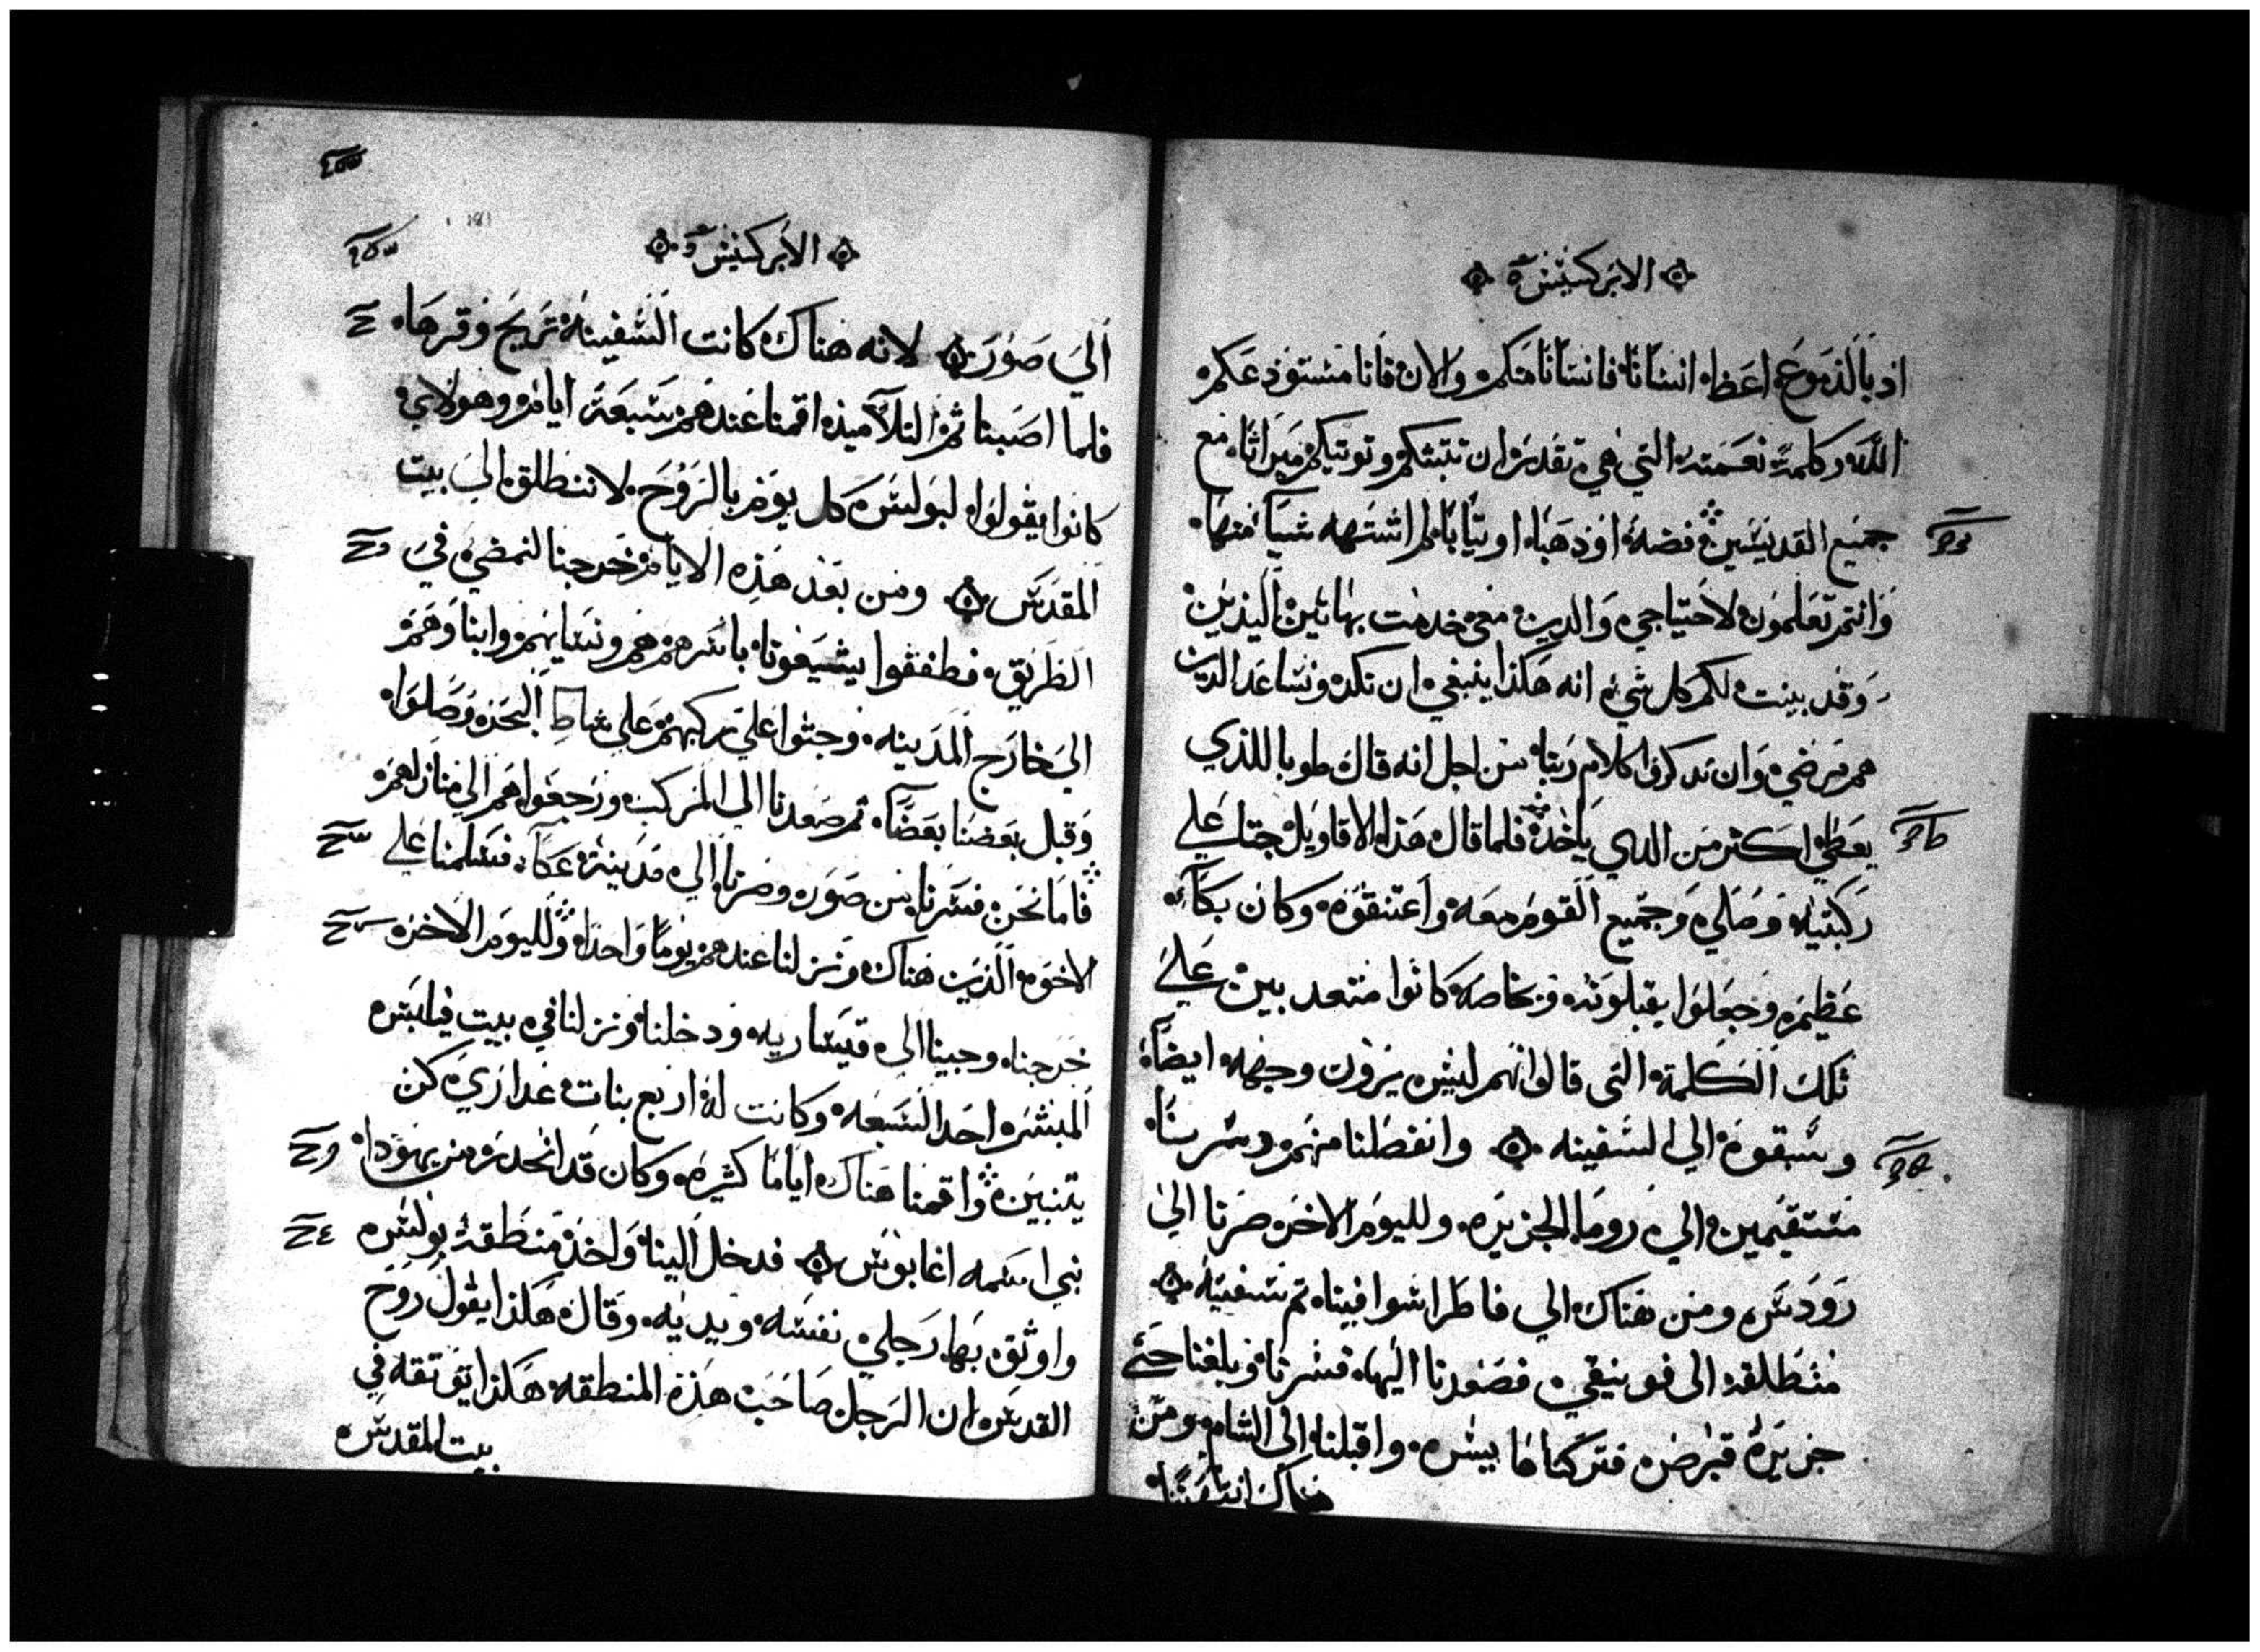 الابركسيس
اذ بالدموع اعظ انسانا فانسانا منكم والان فانا مستودعكم
الله وكلمة نعمته التي هي تقدر ان تثبتكم وتوتيكم ميراثا مع
جميع القديسين فضة او ذهبا او تيابا لم اشتهه شيا منها
وانتم تعلمون لاحتياجي والدين معي خدمت بهاتين اليدين
وقد بينت لكم كل شي انه هكذا ينبغي ان نكد ونساعد الدين
هم مرضي وان ندكروا كلام ربنا من اجل انه قال طوبا للذي
يعطي اكثر من الدي ياخد فلما قال هذا الاقاويل جتا علي
ركبتيه وصلي وجميع القوم معه واعتنقوه وكان بكآء
عظيم وجعلوا يقبلونه وبخاصه كانوا متعدبين علي
تلك الكلمة التي قالوا انهم ليس يرون وجهه ايضا
وسبقوه الي السفينه وانفصلنا منهم وسرنا
مستقيمين الي روما الجزيره ولليوم الاخر صرنا الي
رودس ومن هناك الي فاطرا شوافينا تم سفينه
منطلقه الي فونيقي فصعدنا اليها فسرنا وبلغنا حتي
جزيرة قبرص فتركناها بيسره واقبلنا الي الشام ومن
هناك انتهينا
الابركسيس
الي صور لانه هناك كانت السفينة تريح وقرها
فلما اصبنا تم التلاميذ اقمنا عندهم سبعة ايام وهولاي
كانوا يقولوا لبولس كل يوم بالروح لا تنطلق الي بيت
المقدس ومن بعد هذه الايام خرجنا لنمضي في
الطريق فطفقوا يشيعونا باسرهم هم ونسايهم وابناوهم
الي خارج المدينه وجثوا علي ركبهم علي شاط البحر وصلوا
وقبل بعضنا بعضا تم صعدنا الي المركب ورجعوا هم الي منازلهم
فاما نحن فسرنا من صور وصرنا الي مدينة عكا فسلمنا علي
الاخوه الذين هناك ونزلنا عندهم يوما واحدا ولليوم الاخر
خرجنا وجينا الي قيساريه ودخلنا ونزلنا في بيت فيلبس
المبشر احد السبعه وكانت له اربع بنات عداري كن
يتنبين واقمنا هناك اياما كثيره وكان قد انحدر من يهودا
نبي اسمه اغابوس فدخل الينا واخذ منطقة بولس
واوثق بها رجلي نفسه ويديه وقال هكذا يقول روح
القدس ان الرجل صاحب هذه المنطقه هكذا توتقه في
بيت المقدس